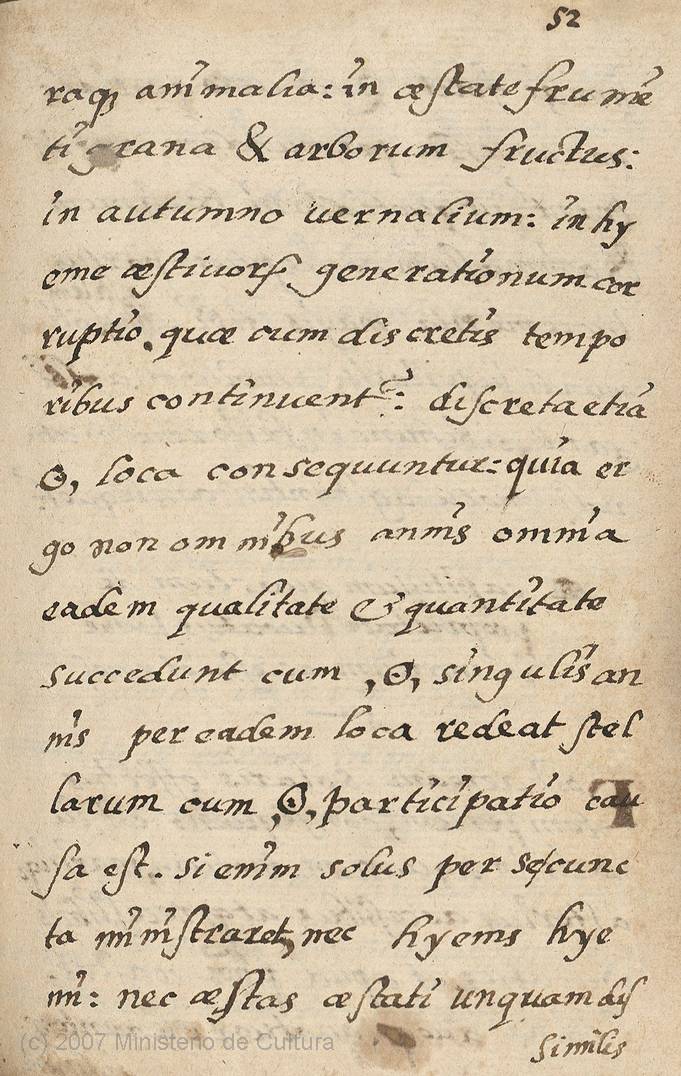 52
raq; animalia: in æstate frumē
ti grana & arborum fructus:
in autumno vernalium: in hy
eme æstivorū generationum cor
ruptio. quæ cum discretis tempo
ribus continuentᷣ: discreta etiā
☉, loca consequuntur: quia er
go non omnibus annis omnia
eadem qualitate & quantitate
succedunt cum ,☉, singulis an
nis per eadem loca redeat stel
larum cum ,☉, participatio cau
sa est. si enim solus per se cunc
ta ministraret, nec hyems hye
mi: nec æstas æstati unquam dis
similis
(c) 2007 Ministerio de Cultura